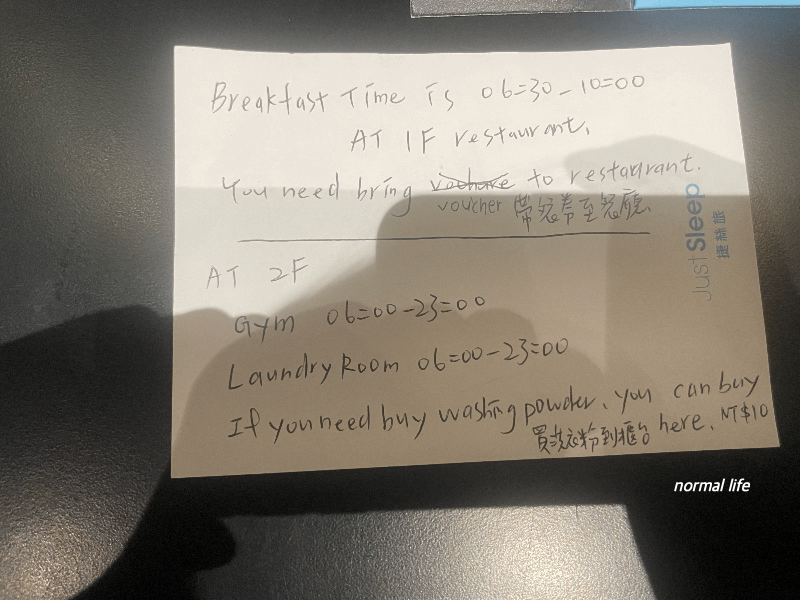 Breakfast Time is 06=30-10=00
AT 1F restaurant,
You need bring vochure to restaurant.
voucher 帶餐券至餐廳
AT 2F
Gym 06=00-23=00
Laundry Room 06=00-23=00
If you need buy washing powder, you can buy
買洗衣粉到櫃台 here, NT$10
Just Sleep
捷絲旅
normal life